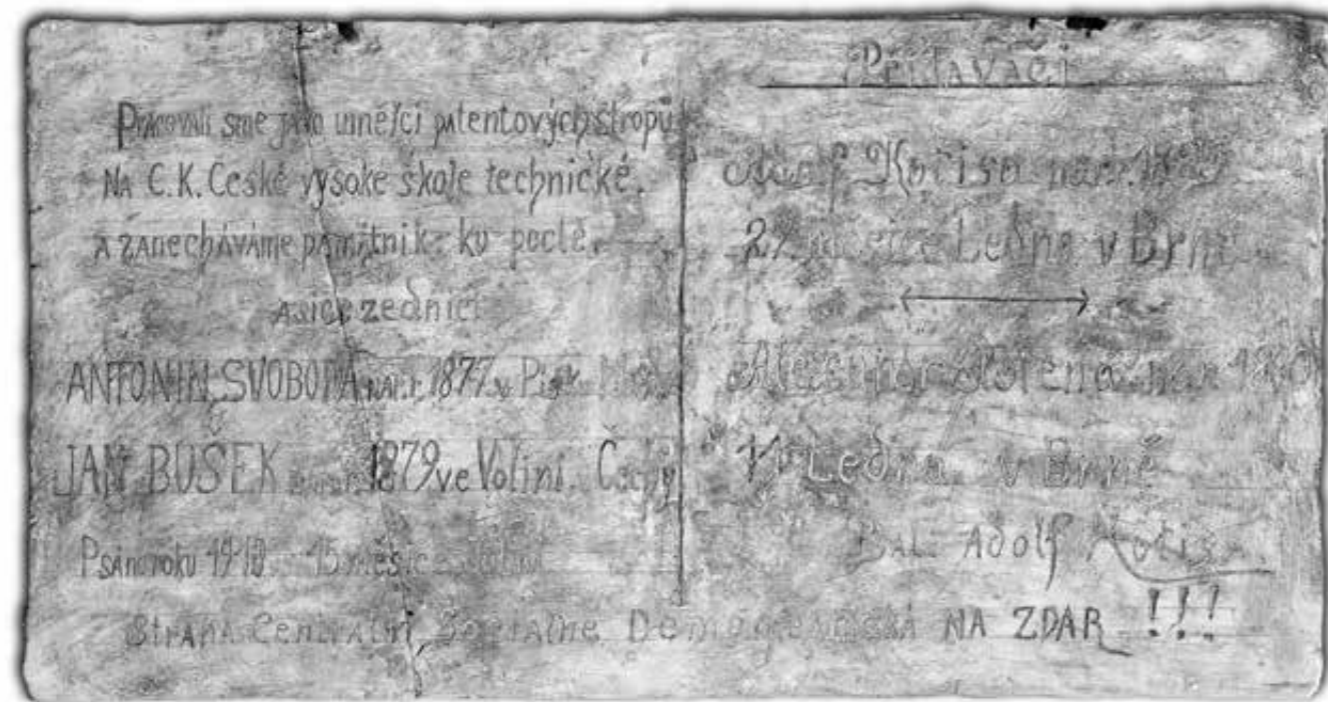 Pracovali sme jako umnějci patentových stropů
NA C.K. České vysoké škole technické.
A zanecháváme pamňtnik ku poctě.
A sice zedníci
ANTONIN SVOBODA nar. r. 1877 v
JAN BUSEK 1879 ve Volini. Čechy
Psáno roku 1910 15 měsíce
Přidavači
Adolf Kočisa nar.
měsíce Ledna v Brně
nar.
Ledna v Brně
Adolf Kočisa
Strana Centralni Socialne NA ZDAR !!!